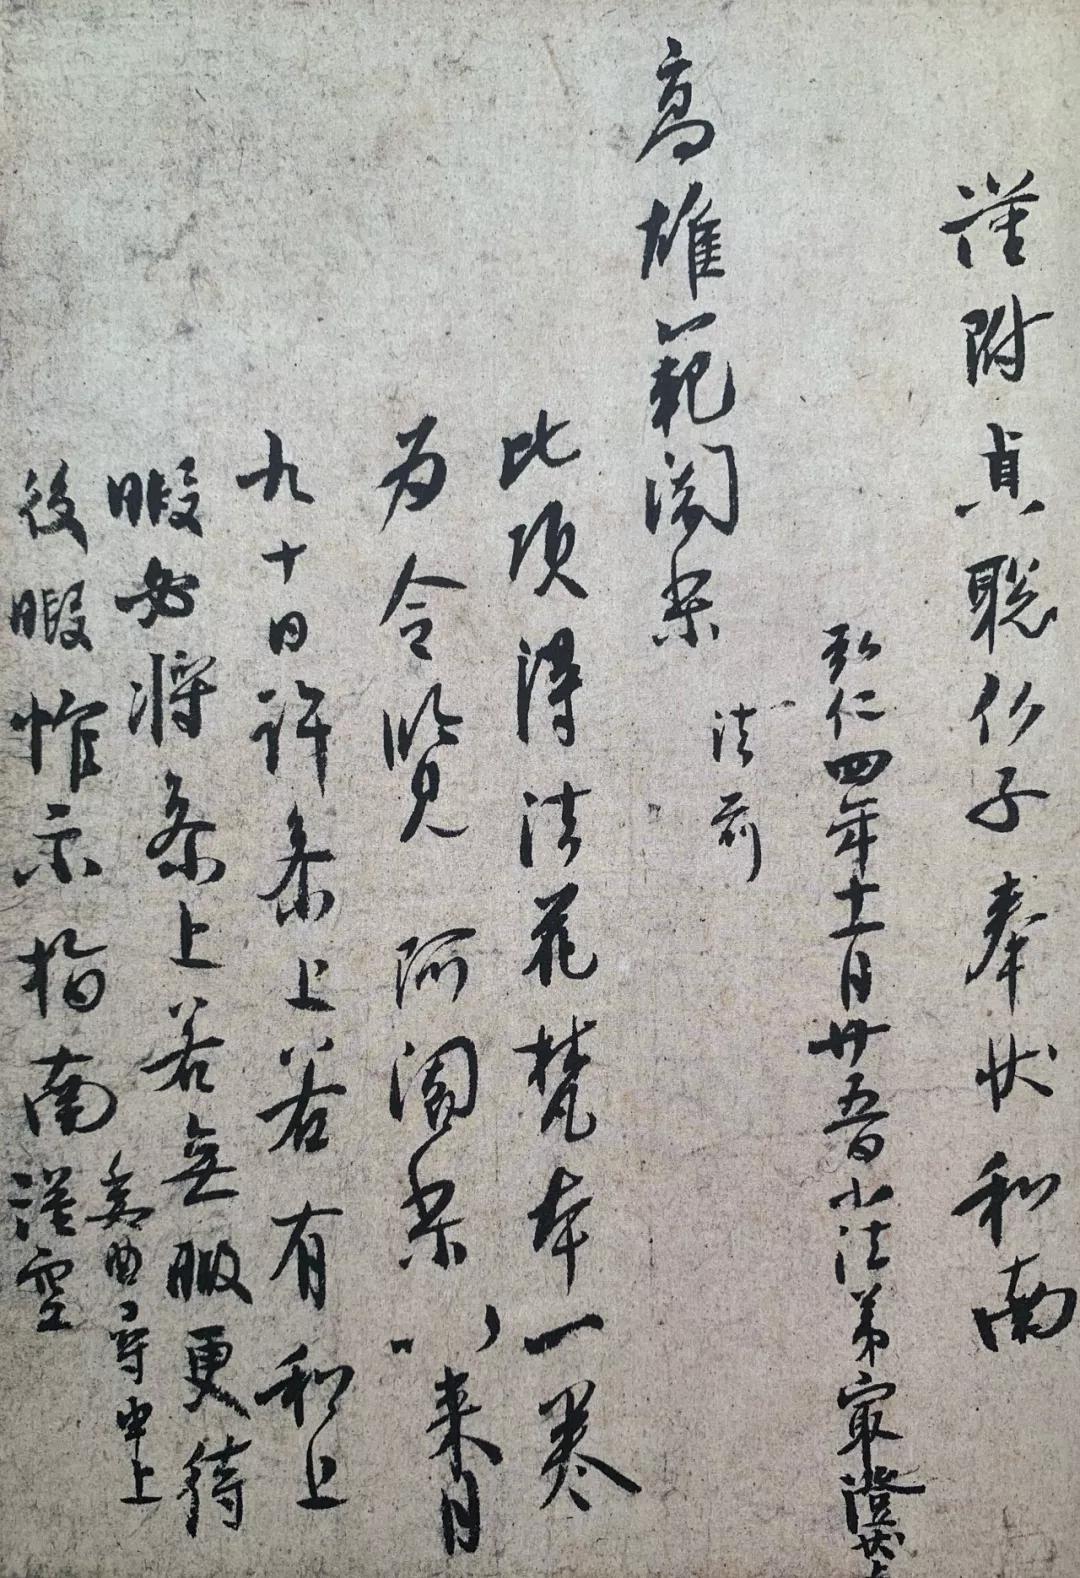 謹附貞聡仏子奉状和南
弘仁四年十一月廿五日小法弟最澄状上
高雄範闍梨
法前
此頃得法花梵本一巻
為令覧 阿闍梨以来月
九十日許参上若有和上
暇必将参上若無暇更待
後暇惟示指南
委曲尋申上
謹空